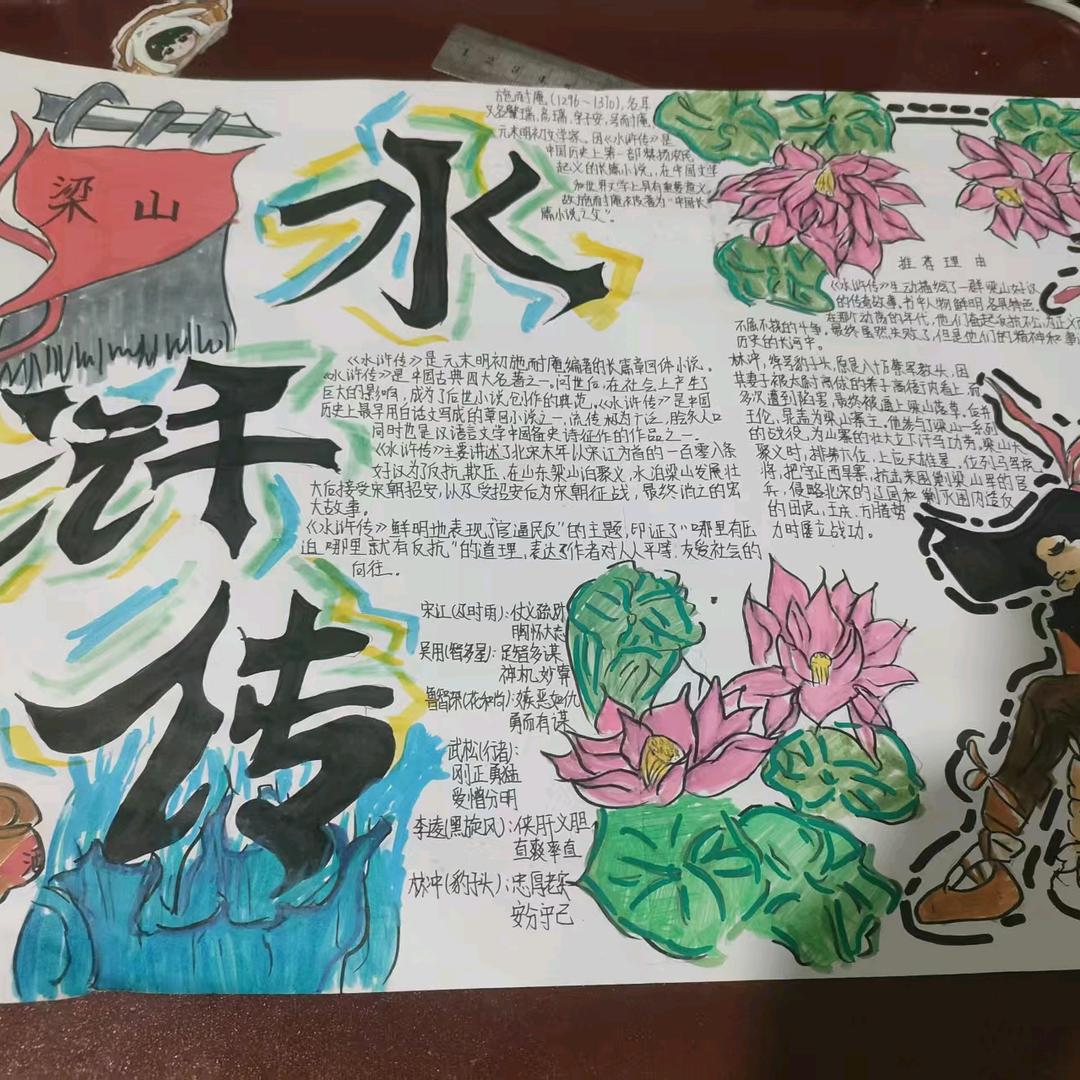 梁山
水
浒
传
施耐庵(1296~1370),名耳
元末明初文学家。因《水浒传》是
中国历史上第一部赞扬农民
起义的长篇小说,在中国文学
和世界文学上具有重要意义
故施耐庵被后人誉为"中国长
篇小说之父"。
推荐理由
《水浒传》生动描绘了一群梁山好汉
的传奇故事,书中人物鲜明各具特色,
在那个动荡的年代,他们奋起反抗不公,为正义而
不屈不挠的斗争,最终虽然失败了,但是他们的精神和事
历史的长河中。
《水浒传》是元末明初施耐庵编著的长篇章回体小说。
《水浒传》是中国古典四大名著之一。问世后,在社会上产生了
巨大的影响,成了后世小说创作的典范。《水浒传》是中国
历史上最早用白话文写成的章回小说之一,流传极为广泛,脍炙人口
同时也是汉语言文学中国备史诗征作的作品之一。
《水浒传》主要讲述了北宋末年以宋江为首的一百零八条
好汉为反抗欺压,在山东梁山泊聚义,水泊梁山发展壮
大后接受宋朝招安,以及受招安后为宋朝征战,最终消亡的宏
大故事。
《水浒传》鲜明地表现了"官逼民反"的主题,印证了"哪里有压
迫哪里就有反抗"的道理,表达了作者对人人平等,友爱社会的
向往。
林冲,绰号豹子头,原是八十万禁军教头,因
其妻子被太尉高俅的养子高衙内看上,而
多次遭到陷害,最终被逼上梁山落草,后并
王伦,晁盖为梁山寨主,他参与了梁山一系列
的战役,为山寨的壮大立下汗马功劳,梁山大
聚义时,排第六位,上应天雄星,位列马军五虎
将,把守正西旱寨,抗击来围剿梁山军的官
兵,侵略北宋的辽国和剿灭国内造反
的田虎,王庆,方腊等势
力时屡立战功。
宋江(及时雨):仗义疏财
胸怀大志
吴用(智多星):足智多谋
神机妙算
鲁智深(花和尚):嫉恶如仇
勇而有谋
武松(行者):
刚正勇猛
爱憎分明
李逵(黑旋风):侠肝义胆
直爽率直
林冲(豹子头):忠厚老实
安分守己
酒